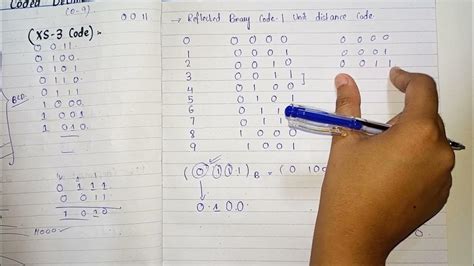 Coded Decimal
(0-9)
(XS-3 Code) :-
0 0 1 1
0 0 1 1
0 1 0 0
0 1 0 1
0 1 1 0
0 1 1 1
1 0 0 0
1 0 0 1
1 0 1 0
BCD
0 1 1 1
0 0 1 1
1 0 1 0
→ Reflected Binary Code | Unit distance Code
0 0 0 0 0 0 0 0 0
1 0 0 0 1 0 0 0 1
2 0 0 1 0 0 0 1 1
3 0 0 1 1 ]
4 0 1 0 0
5 0 1 0 1
6 0 1 1
7 0 1
8 1 0 0 0
9 1 0 0 1
(0 1 1 1)B = (0 100
0 1 0 0